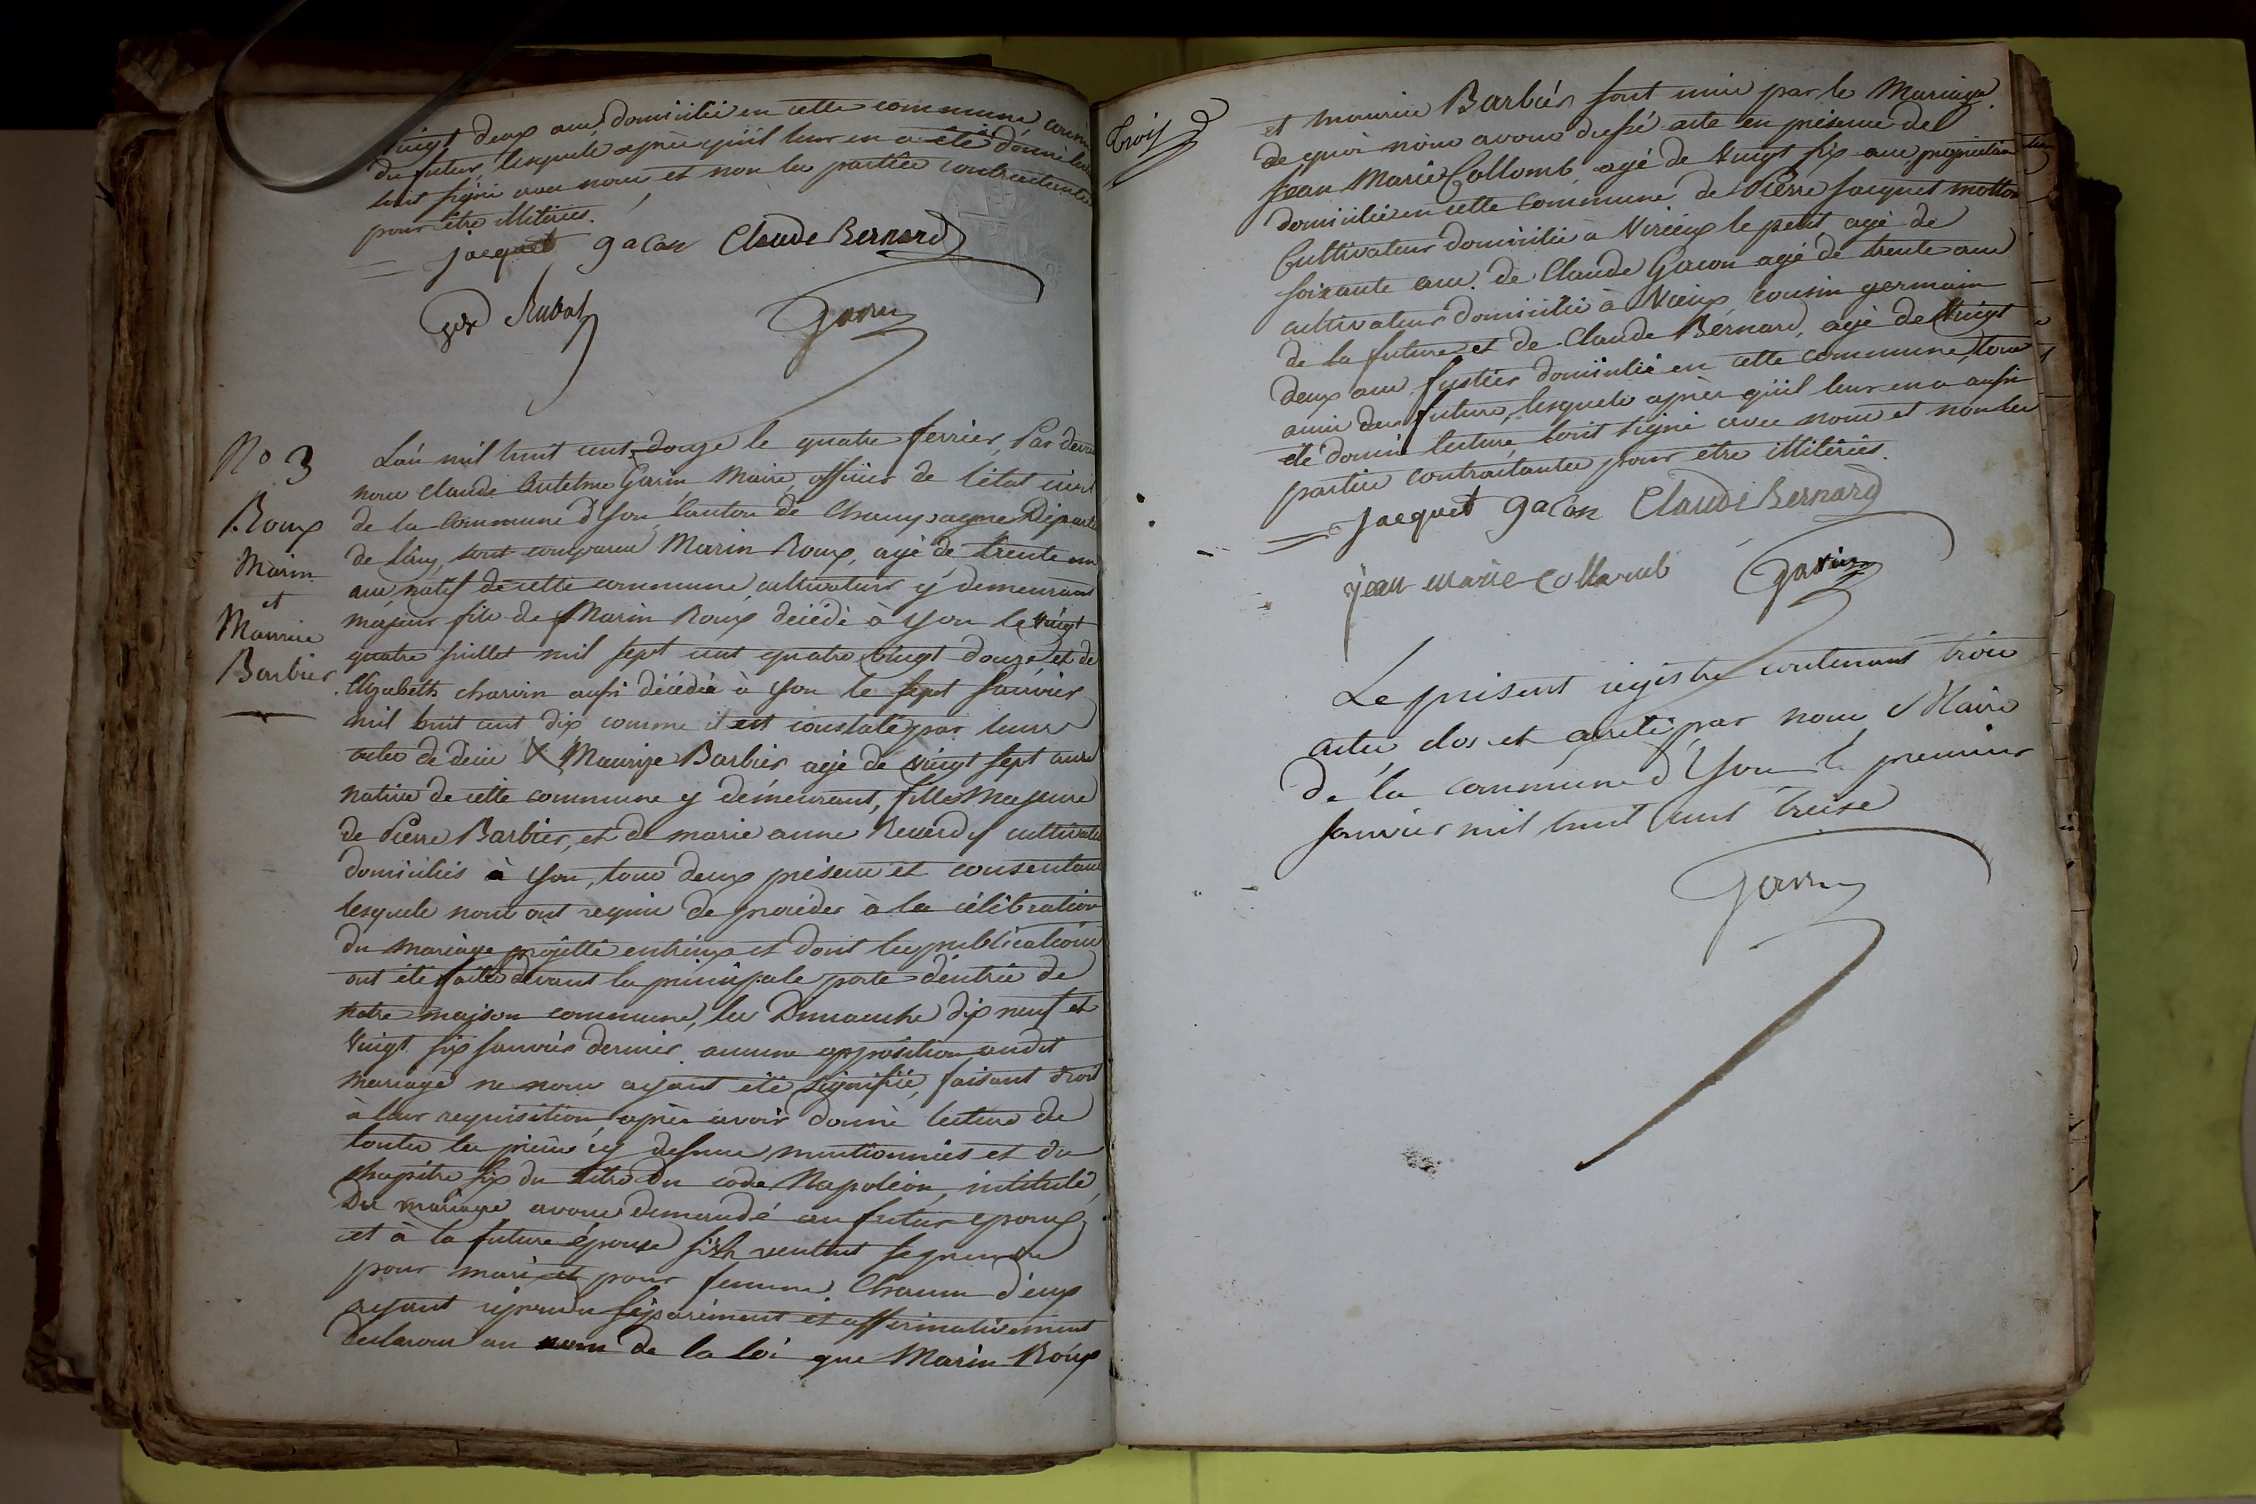 vingt deux ans, domicilié en cette commune cousin
du futur, lesquels après qu'il leur en a été donné lecture
ont signé avec nous et non les parties contractantes
pour être illitérées.
jacquet gacon Claude Bernard
Rubat
Garin
No 3
Roux
Marin
et
Maurise
Barbier
L'an mil huit cent douze le quatre fevrier, Par devant
nous Claude Antelme Garin Maire, officier de l'état civil
de la Commune d'Yon, Canton de Champagne Départt
de l'ain, sont comparus Marin Roux, agé de trente un
ans natif de cette commune, cultivateur y demeurant
majeur fils de Marin Roux décédé à Yon le vingt
quatre juillet mil sept cent quatre vingt douze et de
Elizabeth charvin aussi décédée à Yon le sept Janvier
mil huit cent dix comme il est constaté par leurs
actes de décès & Maurize Barbier agé de vingt sept ans
native de cette commune y démeurant, fille Majeure
de Pierre Barbier, et de marie anne Reverdy cultivateurs
domiciliés à Yon, tous deux présens et consentans
lesquels nous ont requis de procéder à la célébration
du mariage projetté entr'eux et dont les publications
ont été faites devant la principale porte d'entrée de
notre maison commune, les Dimanche dix neuf et
vingt six Janvier dernier aucune opposition audit
mariage ne nous ayant été signifiée, faisant droit
à leur requisition, après avoir donné lecture de
toutes les pièces cy dessus mentionnées et du
chapitre six du titre du code Napoléon, intitulé
Du mariage avons demandé au futur epoux
et à la future épouse s'ils veulent se prendre
pour mari et pour femme. Chacun d'eux
ayant répondu séparément et affirmativement
declarons au nom de la loi que Marin Roux
Trois
et maurise Barbier sont unis par le Mariage.
de quoi nous avons dressé acte en présence de
Jean Marie Collomb agé de vingt six ans, propriétaire
domicilié en cette commune, de Pierre Jacquet
Cultivateur domicilié à Virieux le petit, agé de
soixante ans. de Claude Gacon agé de trente ans
cultivateur domicilié à Vieux cousin germain
de la future et de Claude Bérnard, agé de vingt
deux ans fustier domicilié en cette commune, tous
amis du futur, lesquels après qu'il leur en a aussi
été donné lecture, sont signé avec nous et non les
parties contractantes pour etre illitérées.
Jacquet gacon Claude Bernard
jean marie collomb Garin
Le présent registre contenant trois
actes clos et areté par nous Maire
de la commune d'Yon le premier
Janvier mil huit cent treise
Garin